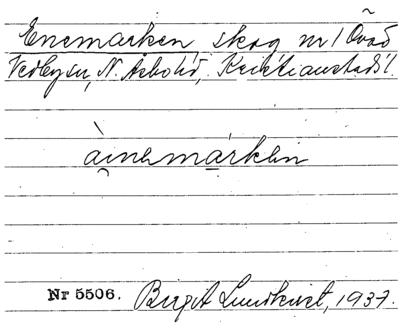 Enemarken, skog nr 1 Övad
Vedbysn, N. Åsbohd, Kristianstads l.
àinəmárkən
Nr 5506. Birgit Lundkvist, 1937.